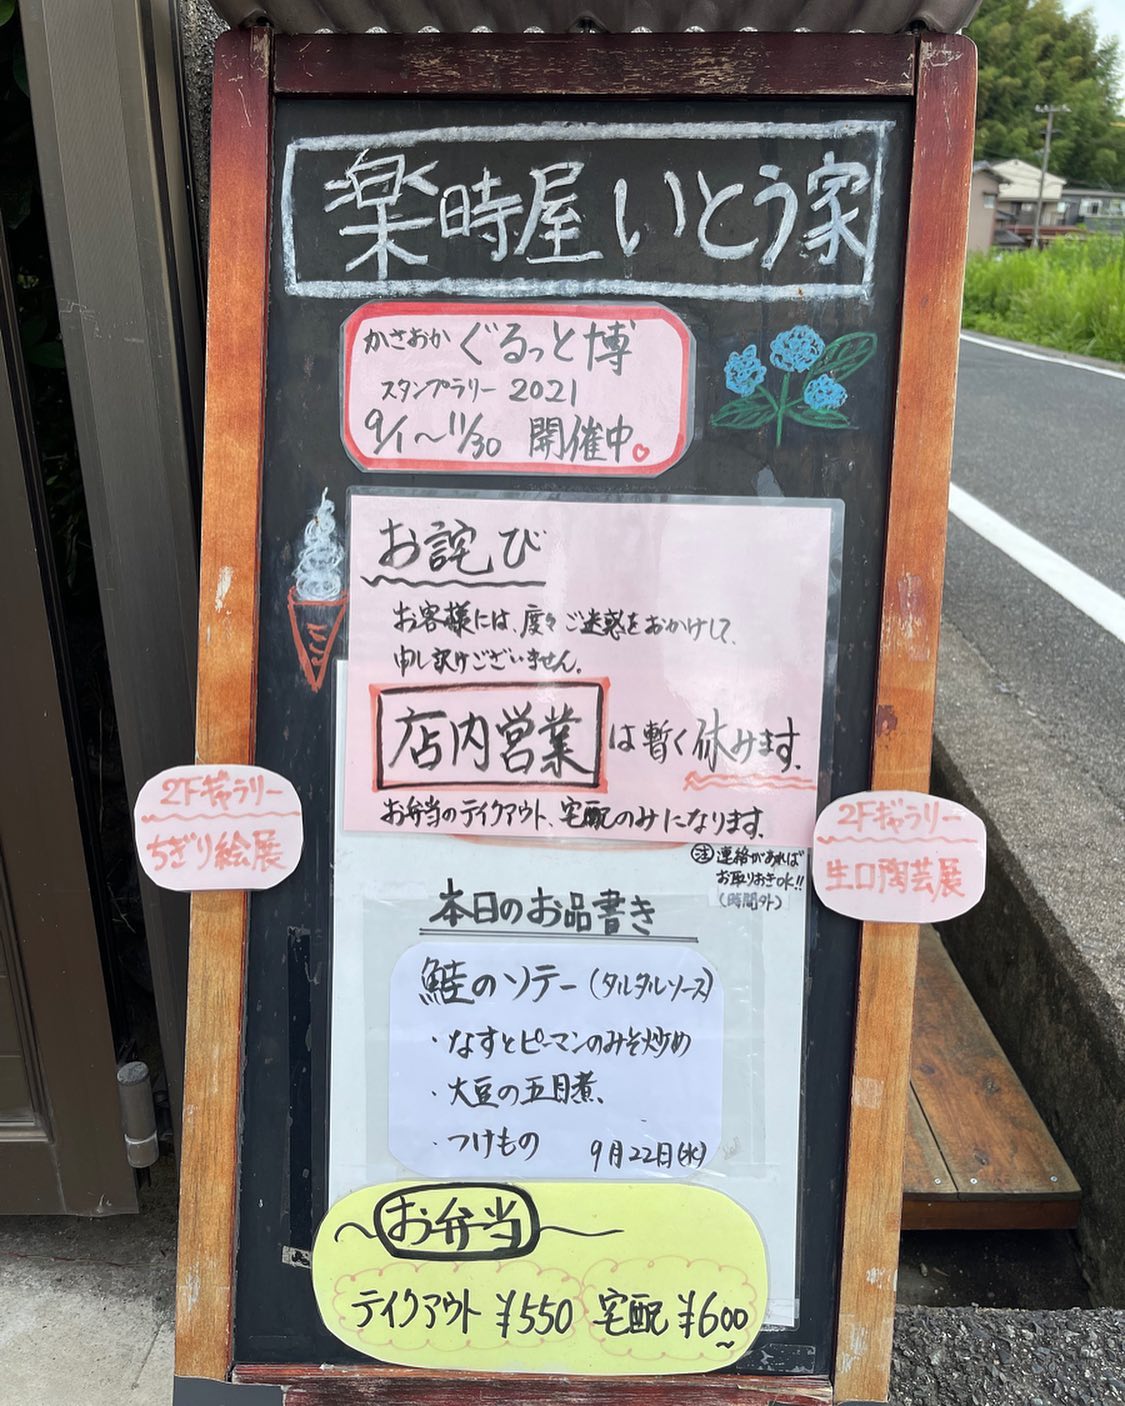 楽時屋 いとう家
かさおか ぐるっと博
スタンプラリー 2021
9/1〜11/30 開催中
お詫び
お客様には、度々ご迷惑をおかけして、
申し訳けございません。
店内営業は暫く休みます。
お弁当のテイクアウト、宅配のみになります。
注 連絡があれば
お取りおきOK!!
(時間外)
2Fギャラリー
ちぎり絵展
2Fギャラリー
生口陶芸展
本日のお品書き
鮭のソテー(タルタルソース)
・なすとピーマンのみそ炒め
・大豆の五目煮、
・つけもの 9月22日(水)
お弁当
テイクアウト ¥550 宅配 ¥600